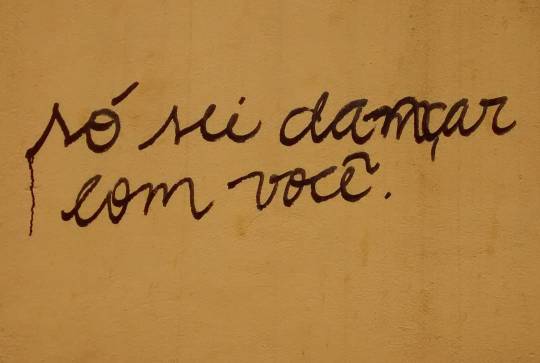 só sei dançar
com você.